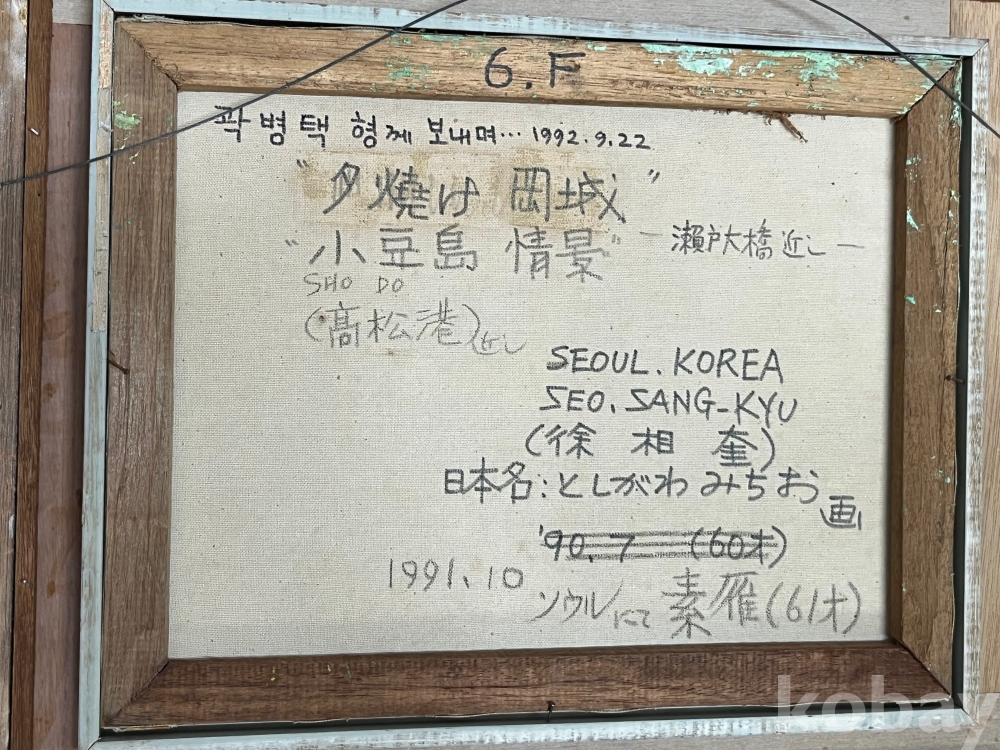 6.F
곽병택 형께 보내며… 1992.9.22
"夕燒け 岡城"
"小豆島 情景" ー瀬戸大橋近しー
SHO DO
(髙松港)近し
SEOUL. KOREA
SEO. SANG-KYU
(徐 相 奎)
日本名:としがわ みちお 画
'90.7 (60才)
1991.10
ソウルにて 素雁(61才)
kobay